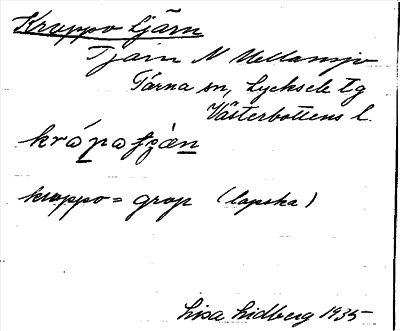 Kroppo tjärn
Tjärn N Mellansjö
Tärna sn, Lycksele tg
Västerbottens l.
króp̲afjɛ̀n̲
kroppo = grop (lapska)
Lisa Lidberg 1935